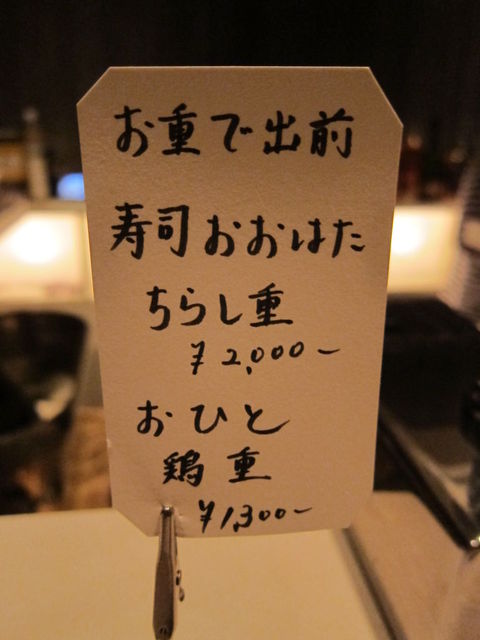 お重で出前
寿司おおはた
ちらし重
¥2,000-
おひと
鶏重
¥1,300-